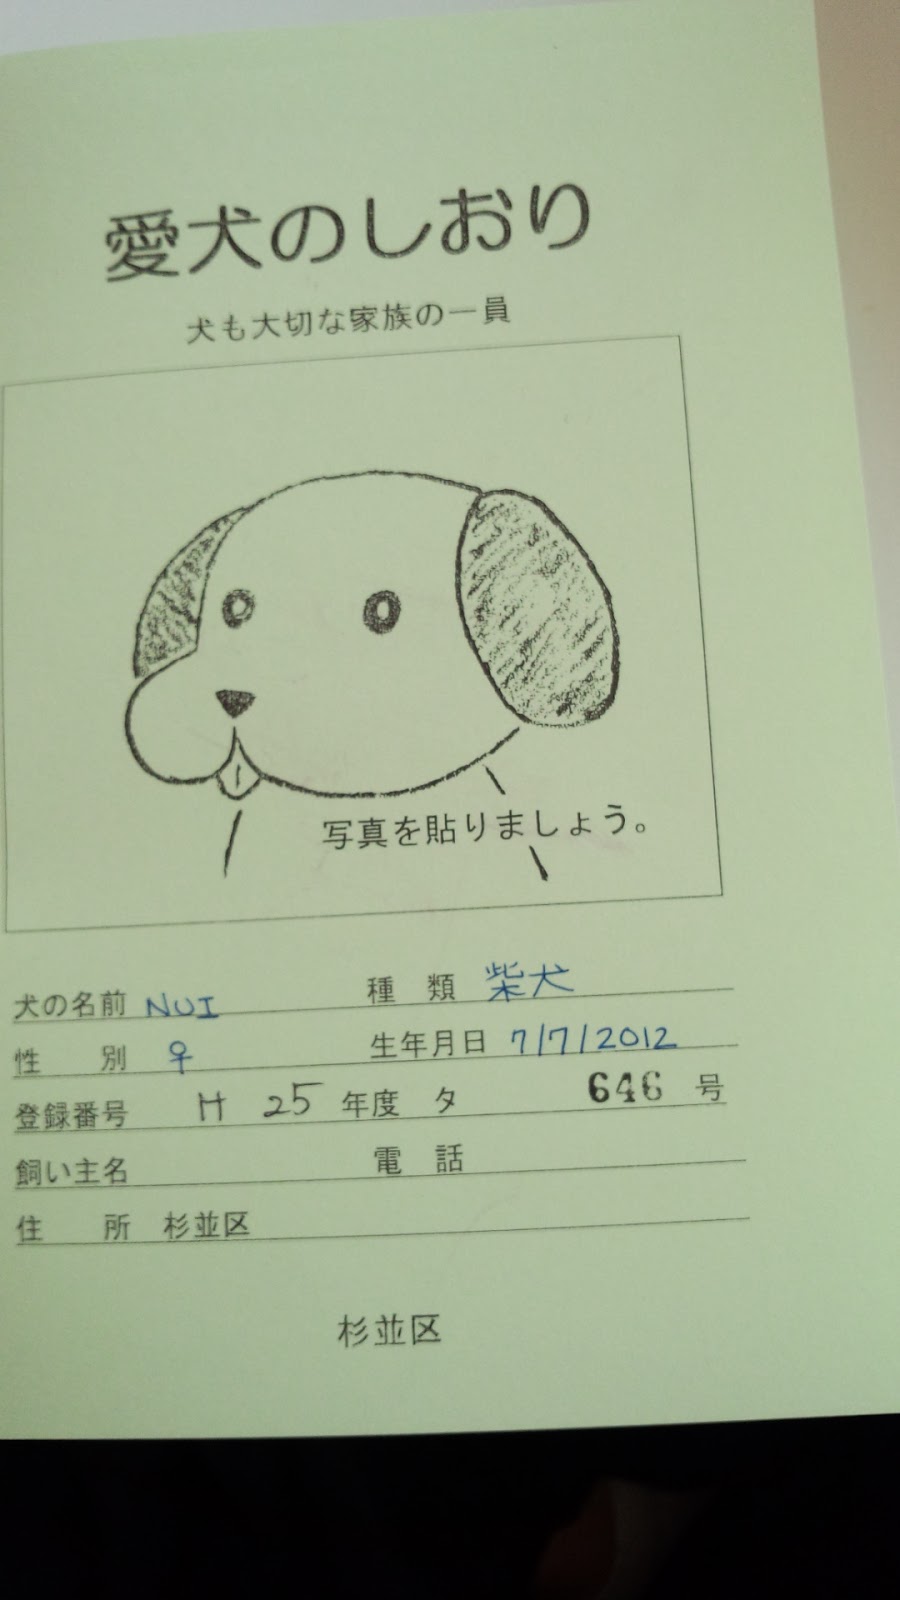 愛犬のしおり
犬も大切な家族の一員
写真を貼りましょう。
犬の名前 NUI 種類 柴犬
性別 ♀ 生年月日 7/7/2012
登録番号 H 25 年度 タ 646 号
飼い主名 電話
住所 杉並区
杉並区